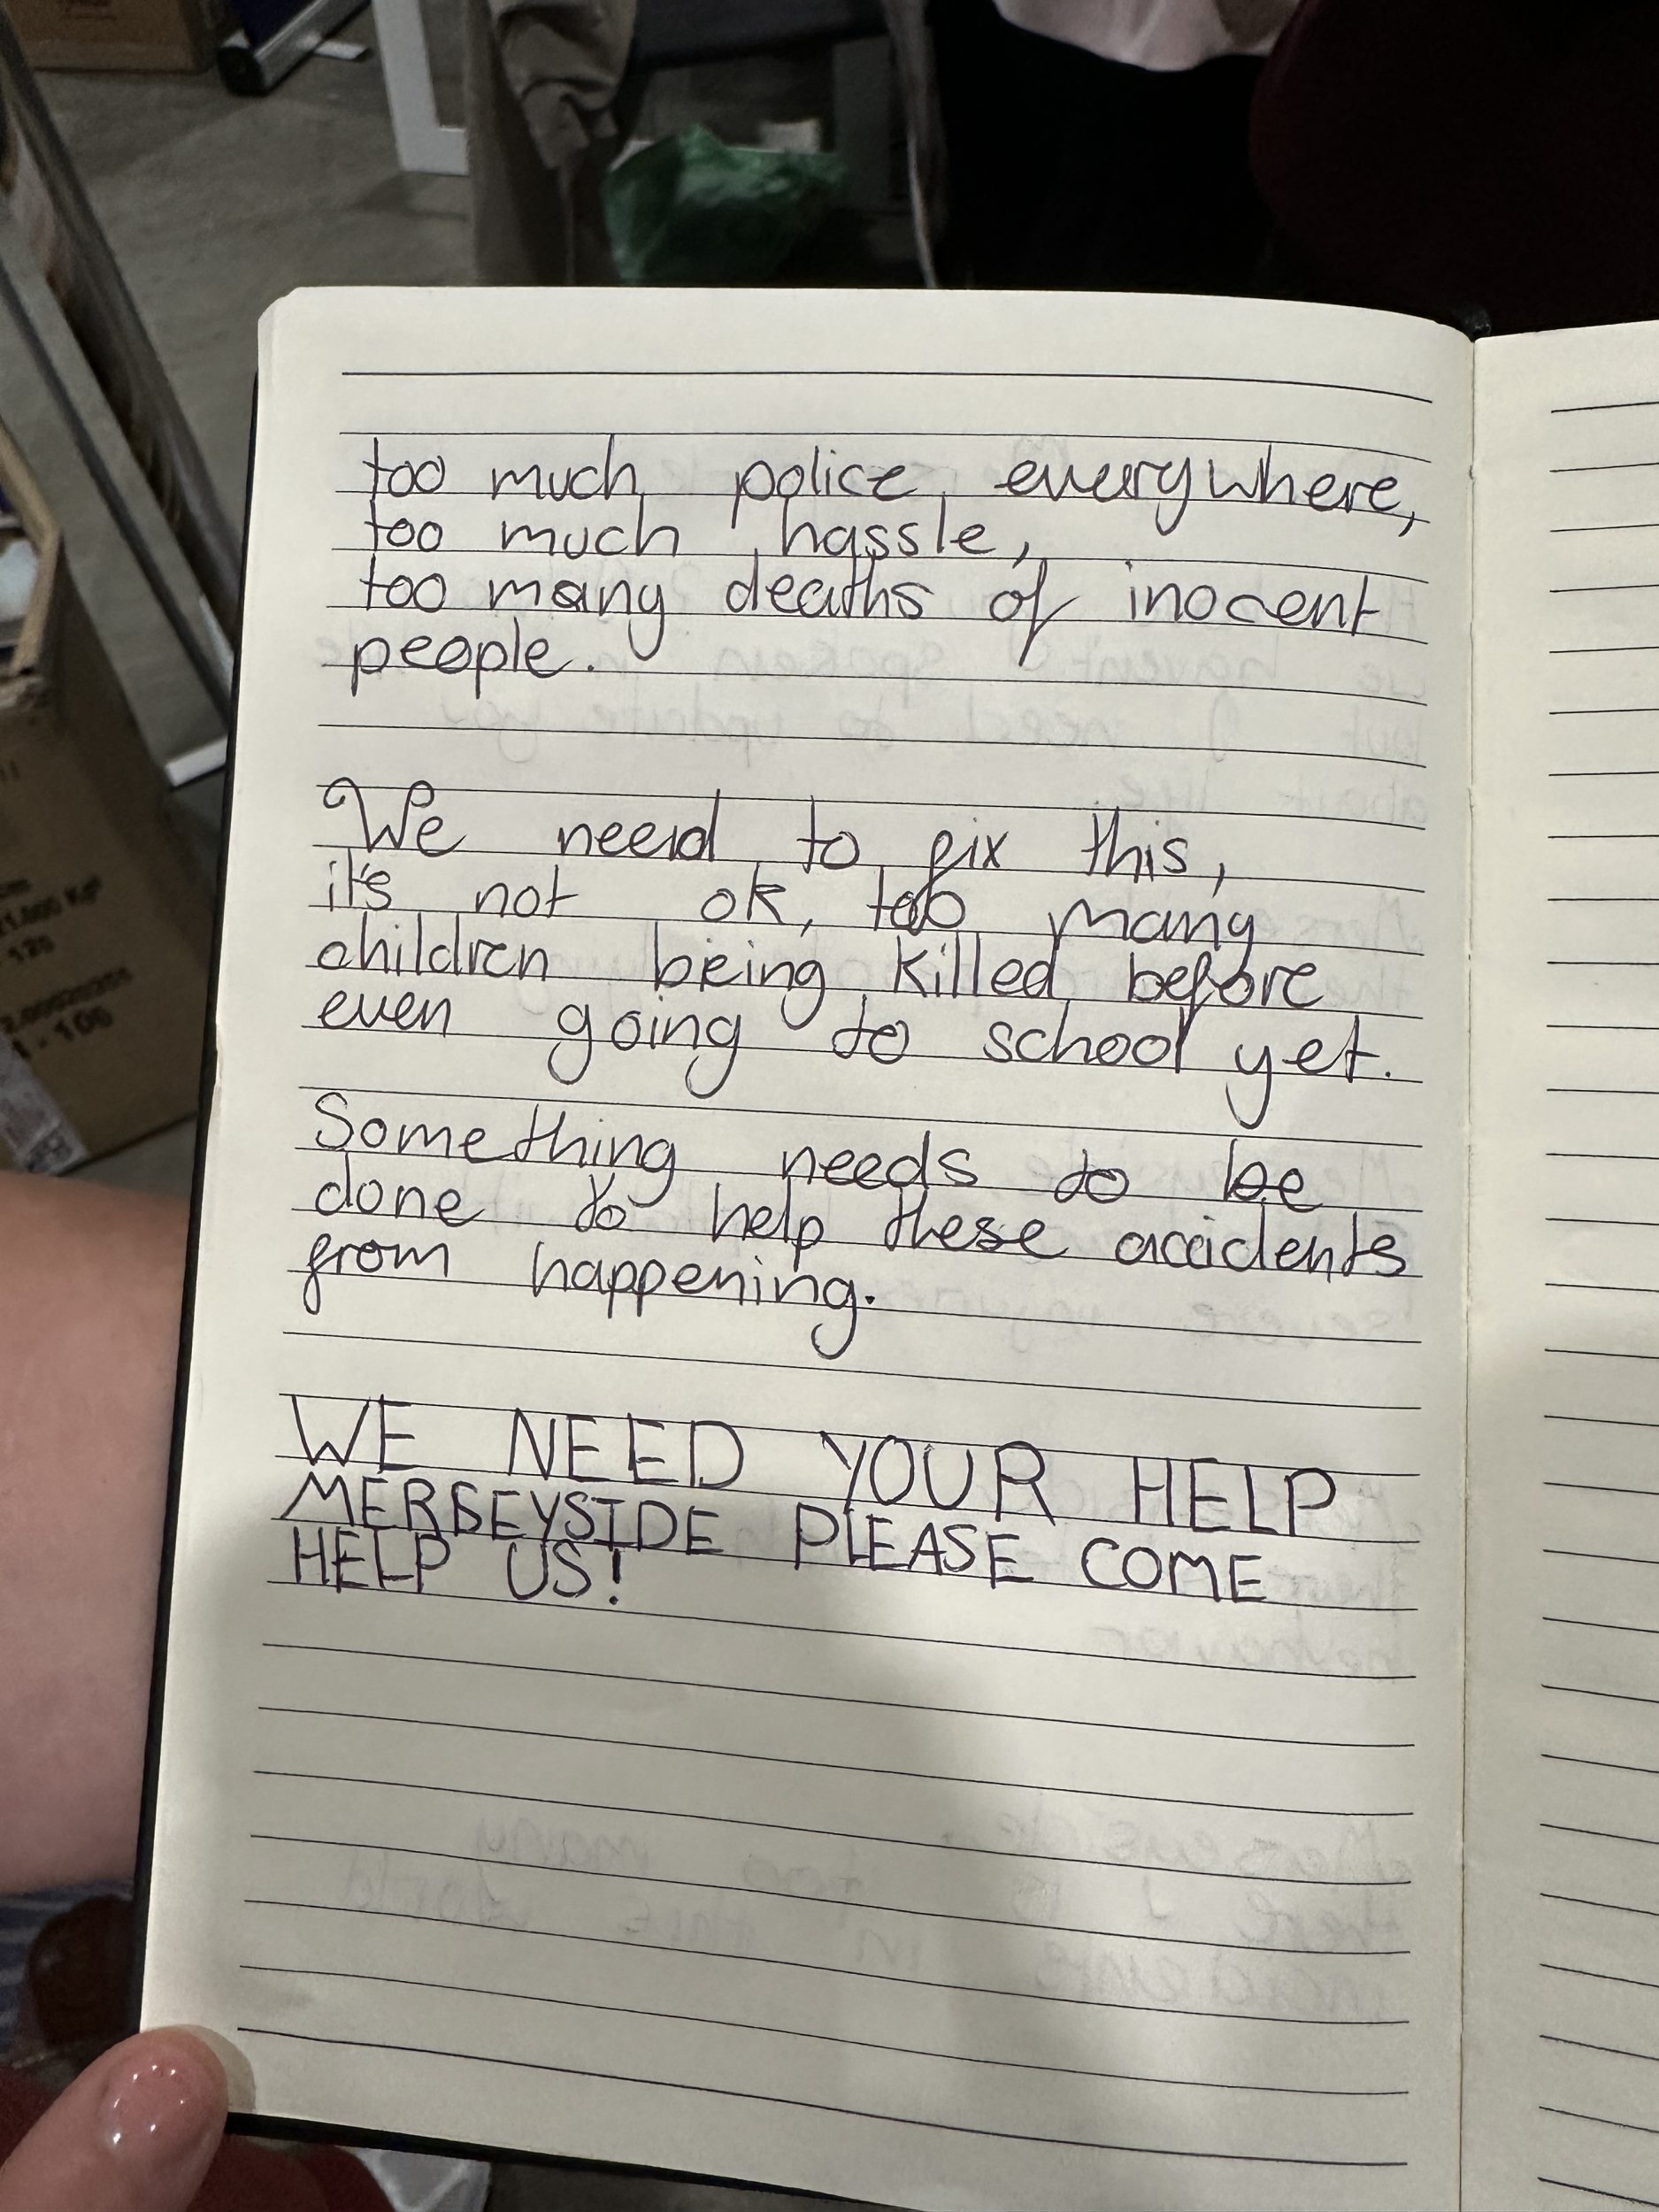 too much police everywhere,
too much hassle,
too many deaths of inocent
people.
We need to fix this,
it's not ok, too many
children being killed before
even going to school yet.
Something needs to be
done to help these accidents
from happening.
WE NEED YOUR HELP
MERSEYSIDE PLEASE COME
HELP US!